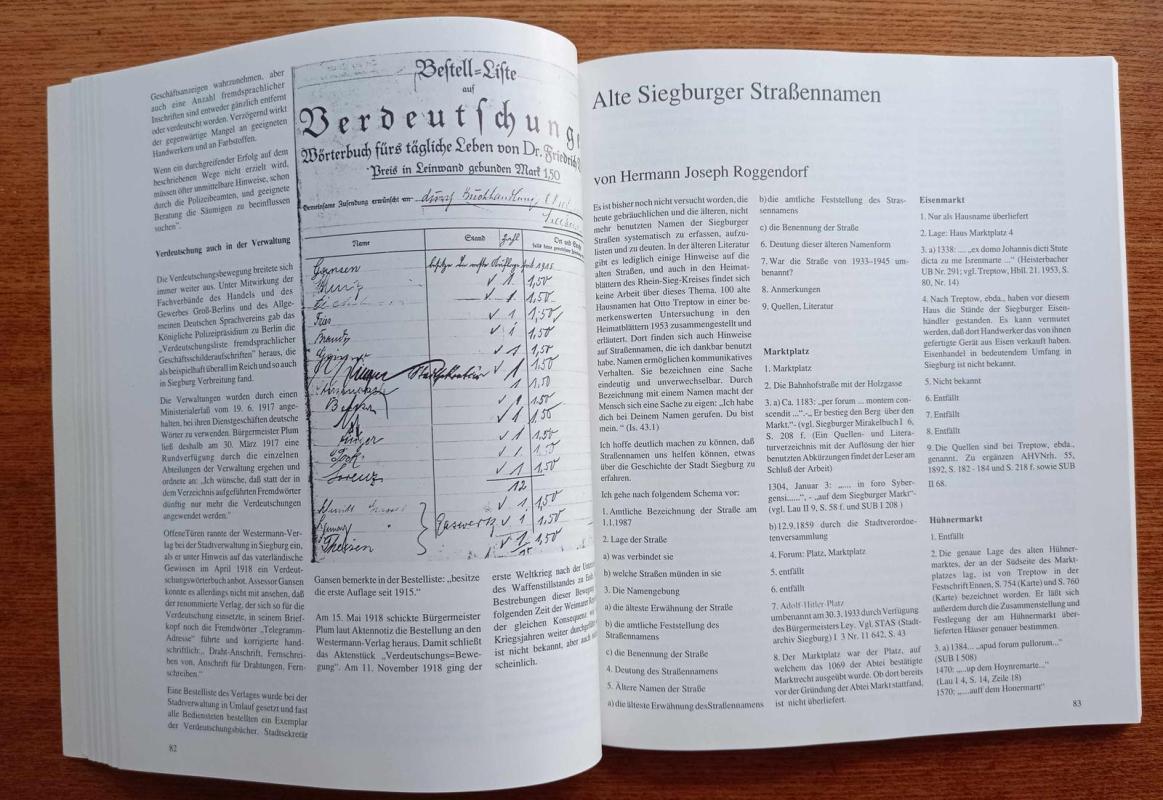 Geschäftsanzeigen wahrzunehmen, aber
auch eine Anzahl fremdsprachlicher
Inschriften sind entweder gänzlich entfernt
oder verdeutscht worden. Verzögernd wirkt
der gegenwärtige Mangel an geeigneten
Handwerkern und an Farbstoffen.
Wenn ein durchgreifender Erfolg auf dem
beschriebenen Wege nicht erzielt wird,
müssen öfter unmittelbare Hinweise, schon
durch die Polizeibeamten, und geeignete
Beratung die Säumigen zu beeinflussen
suchen“.
Verdeutschung auch in der Verwaltung
Die Verdeutschungsbewegung breitete sich
immer weiter aus. Unter Mitwirkung der
Fachverbände des Handels und des
Gewerbes Groß-Berlins und des Allge-
meinen Deutschen Sprachvereins gab das
Königliche Polizeipräsidium zu Berlin die
„Verdeutschungsliste fremdsprachlicher
Geschäftsschilderaufschriften“ heraus, die
als beispielhaft überall im Reich und so auch
in Siegburg Verbreitung fand.
Die Verwaltungen wurden durch einen
Ministerialerlaß vom 19. 6. 1917 ange-
halten, bei ihren Dienstgeschäften deutsche
Wörter zu verwenden. Bürgermeister Plum
ließ deshalb am 30. März 1917 eine
Rundverfügung durch die einzelnen
Abteilungen der Verwaltung ergehen und
ordnete an: „Ich wünsche, daß statt der in
dem Verzeichnis aufgeführten Fremdwörter
künftig nur mehr die Verdeutschungen
angewendet werden.“
Offene Türen rannte der Westermann-Ver-
lag bei der Stadtverwaltung in Siegburg ein,
als er unter Hinweis auf das vaterländische
Gewissen im April 1918 ein Verdeut-
schungswörterbuch anbot. Assessor Gansen
konnte es allerdings nicht mit ansehen, daß
der renommierte Verlag, der sich so für die
Verdeutschung einsetzte, in seinem Brief-
kopf noch die Fremdwörter „Telegramm-
Adresse“ führte und korrigierte hand-
schriftlich: „Draht-Anschrift, Fernschrei-
ben von, Anschrift für Drahtungen, Fern-
schreiben.“
Eine Bestelliste des Verlages wurde bei der
Stadtverwaltung in Umlauf gesetzt und fast
alle Bediensteten bestellten ein Exemplar
der Verdeutschungsbücher. Stadtsekretär
82
Bestell=Liste
auf
Verdeutschunge
Wörterbuch fürs tägliche Leben von Dr. Friedrich
Preis in Leinwand gebunden Mark 1,50
Gemeinsame Zusendung erwünscht von durch Buchhandlung
Name Stand Zahl Ort und
Gansen besitze die erste Auflage seit 1915
√ 1 1,50
√ 1 1,50
Fries √ 1 1,50
Brandt √ 1 1,50
√ 1 1,50
Stadtsekretär 1 1,50
1 1,50
√ 1 1,50
√ 1 1,50
√ 1 1,50
√ 1 1,50
Lorenz √ 1 1,50
12
√ 1 1,50
Gaswerk √ 1 1,50
Theisen √ 1 1,50
15
Gansen bemerkte in der Bestelliste: „besitze
die erste Auflage seit 1915.“
Am 15. Mai 1918 schickte Bürgermeister
Plum laut Aktennotiz die Bestellung an den
Westermann-Verlag heraus. Damit schließt
das Aktenstück „Verdeutschungs=Bewe-
gung“. Am 11. November 1918 ging der
erste Weltkrieg nach der
des Waffenstillstandes zu Ende.
Bestrebungen dieser Bewegung
folgenden Zeit der Weimarer
der gleichen Konsequenz wie
Kriegsjahren weiter durchgeführt
ist nicht bekannt, aber auch
scheinlich.
Alte Siegburger Straßennamen
von Hermann Joseph Roggendorf
Es ist bisher noch nicht versucht worden, die
heute gebräuchlichen und die älteren, nicht
mehr benutzten Namen der Siegburger
Straßen systematisch zu erfassen, aufzu-
listen und zu deuten. In der älteren Literatur
gibt es lediglich einige Hinweise auf die
alten Straßen, und auch in den Heimat-
blättern des Rhein-Sieg-Kreises findet sich
keine Arbeit über dieses Thema. 100 alte
Hausnamen hat Otto Treptow in einer be-
merkenswerten Untersuchung in den
Heimatblättern 1953 zusammengestellt und
erläutert. Dort finden sich auch Hinweise
auf Straßennamen, die ich dankbar benutzt
habe. Namen ermöglichen kommunikatives
Verhalten. Sie bezeichnen eine Sache
eindeutig und unverwechselbar. Durch
Bezeichnung mit einem Namen macht der
Mensch sich eine Sache zu eigen: „Ich habe
dich bei Deinem Namen gerufen. Du bist
mein. “ (Is. 43.1)
Ich hoffe deutlich machen zu können, daß
Straßennamen uns helfen können, etwas
über die Geschichte der Stadt Siegburg zu
erfahren.
Ich gehe nach folgendem Schema vor:
1. Amtliche Bezeichnung der Straße am
1.1.1987
2. Lage der Straße
a) was verbindet sie
b) welche Straßen münden in sie
3. Die Namengebung
a) die älteste Erwähnung der Straße
b) die amtliche Feststellung des
Straßennamens
c) die Benennung der Straße
4. Deutung des Straßennamens
5. Ältere Namen der Straße
a) die älteste Erwähnung des Straßennamens
b) die amtliche Feststellung des Stras-
sennamens
c) die Benennung der Straße
6. Deutung dieser älteren Namenform
7. War die Straße von 1933–1945 um-
benannt?
8. Anmerkungen
9. Quellen, Literatur
Marktplatz
1. Marktplatz
2. Die Bahnhofstraße mit der Holzgasse
3. a) Ca. 1183: „per forum ... montem con-
scendit ...“.-„ Er bestieg den Berg über den
Markt.“- (vgl. Siegburger Mirakelbuch I 6,
S. 208 f. (Ein Quellen- und Litera-
turverzeichnis mit der Auflösung der hier
benutzten Abkürzungen findet der Leser am
Schluß der Arbeit)
1304, Januar 3: „..... in foro Syber-
gensi......“, - „auf dem Siegburger Markt“-
(vgl. Lau II 9, S. 58 f. und SUB I 208 )
b)12.9.1859 durch die Stadtverordne-
tenversammlung
4. Forum: Platz, Marktplatz
5. entfällt
6. entfällt
7. Adolf-Hitler-Platz
umbenannt am 30.3.1933 durch Verfügung
des Bürgermeisters Ley. Vgl. STAS (Stadt-
archiv Siegburg) I 3 Nr. 11 642, S. 43
8. Der Marktplatz war der Platz, auf
welchem das 1069 der Abtei bestätigte
Marktrecht ausgeübt wurde. Ob dort bereits
vor der Gründung der Abtei Markt stattfand,
ist nicht überliefert.
Eisenmarkt
1. Nur als Hausname überliefert
2. Lage: Haus Marktplatz 4
3. a) 1338: .... „ex domo Johannis dicti Stute
dicta zu me Isrenmarte ...“ (Heisterbacher
UB Nr. 291; vgl. Treptow, Hbll. 21. 1953, S.
80, Nr. 14)
4. Nach Treptow, ebda., haben vor diesem
Haus die Stände der Siegburger Eisen-
händler gestanden. Es kann vermutet
werden, daß dort Handwerker das von ihnen
gefertigte Gerät aus Eisen verkauft haben.
Eisenhandel in bedeutendem Umfang in
Siegburg ist nicht bekannt.
5. Nicht bekannt
6. Entfällt
7. Entfällt
8. Entfällt
9. Die Quellen sind bei Treptow, ebda.,
genannt. Zu ergänzen AHVNrh. 55,
1892, S. 182 - 184 und S. 218 f. sowie SUB
II 68.
Hühnermarkt
1. Entfällt
2. Die genaue Lage des alten Hühner-
marktes, der an der Südseite des Markt-
platzes lag, ist von Treptow in der
Festschrift Ennen, S. 754 (Karte) und S. 760
(Karte) bezeichnet worden. Er läßt sich
außerdem durch die Zusammenstellung und
Festlegung der am Hühnermarkt über-
lieferten Häuser genauer bestimmen.
3. a) 1384... „apud forum pullorum...“
(SUB I 508)
1470: „....up dem Hoynremarte...“
(Lau I 4, S. 14, Zeile 18)
1570: „.....auff dem Honermartt“
83